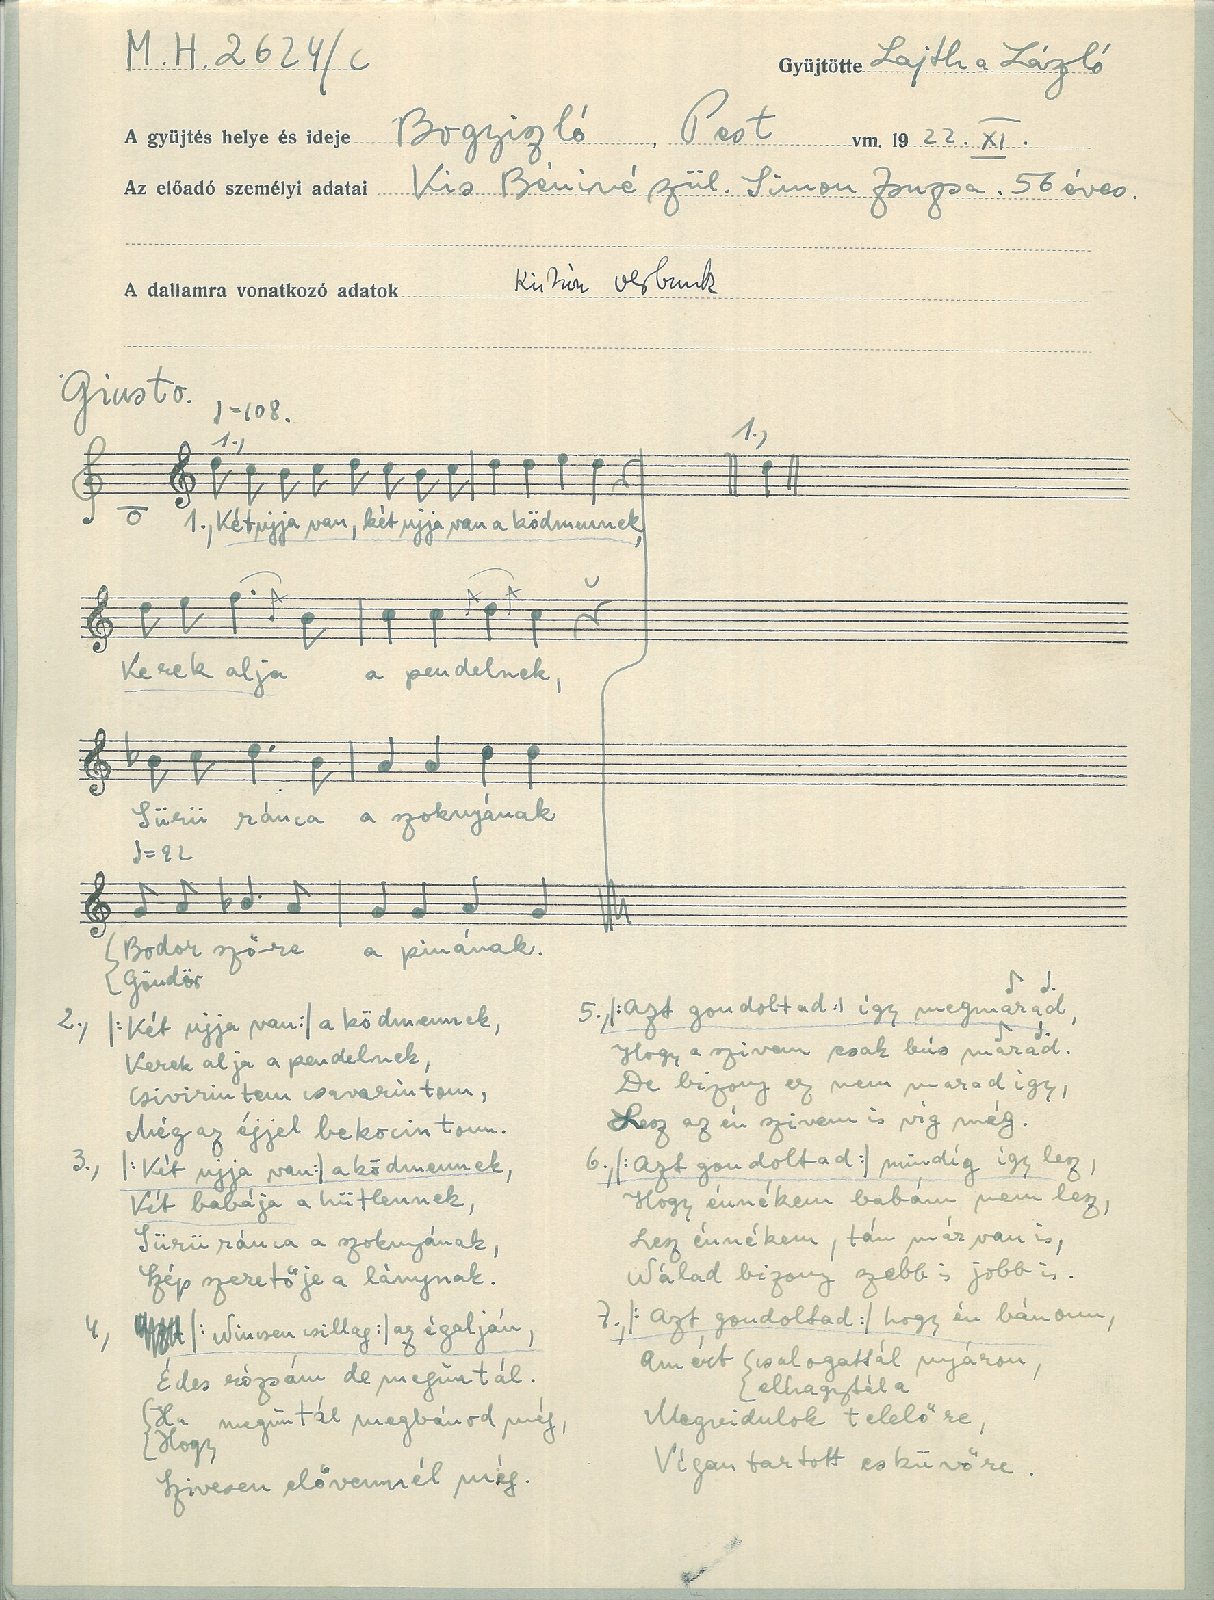 M.H. 2624/c
Gyüjtötte Lajtha László
A gyüjtés helye és ideje Bogyiszló, Pest vm. 1922. XI.
Az előadó személyi adatai Kis Béniné szül. Simon Zsuzsa. 56 éves.
A dallamra vonatkozó adatok verbunk
Giusto.
♩=108.
1.,
1.,
1., Két ujja van, két ujja van a ködmennek,
Kerek alja a pendelnek,
Sürü ránca a szoknyának
♩=92
{Bodor szőre a pinának.
{Göndör
2., |: Két ujja van :| a ködmennek,
Kerek alja a pendelnek,
Csivirintem csavarintom,
Még az éjjel bekocintom.
3., |: Két ujja van :| a ködmennek,
Két babája a hütlennek,
Sürü ránca a szoknyának,
Szép szeretője a lánynak.
4., |: Nincsen csillag :| az égalján,
Édes rózsám de meguntál.
{Ha meguntál megbánod még,
{Hogy
Szivesen elővennél még.
5., |: Azt gondoltad :| így megmarad,
Hogy a szivem csak bús marad.
De bizony ez nem marad igy,
Lesz az én szivem is víg még.
6., |: Azt gondoltad :| mindíg így lesz,
Hogy énnékem babám nem lesz,
Lesz énnékem, tán már van is,
Nálad bizony szebb is jobb is.
7., |: Azt gondoltad :| hogy én bánom,
Amért {csalogattál nyáron,
{elhagytál a
Megvidulok telelőre,
Vígan tartott esküvőre.